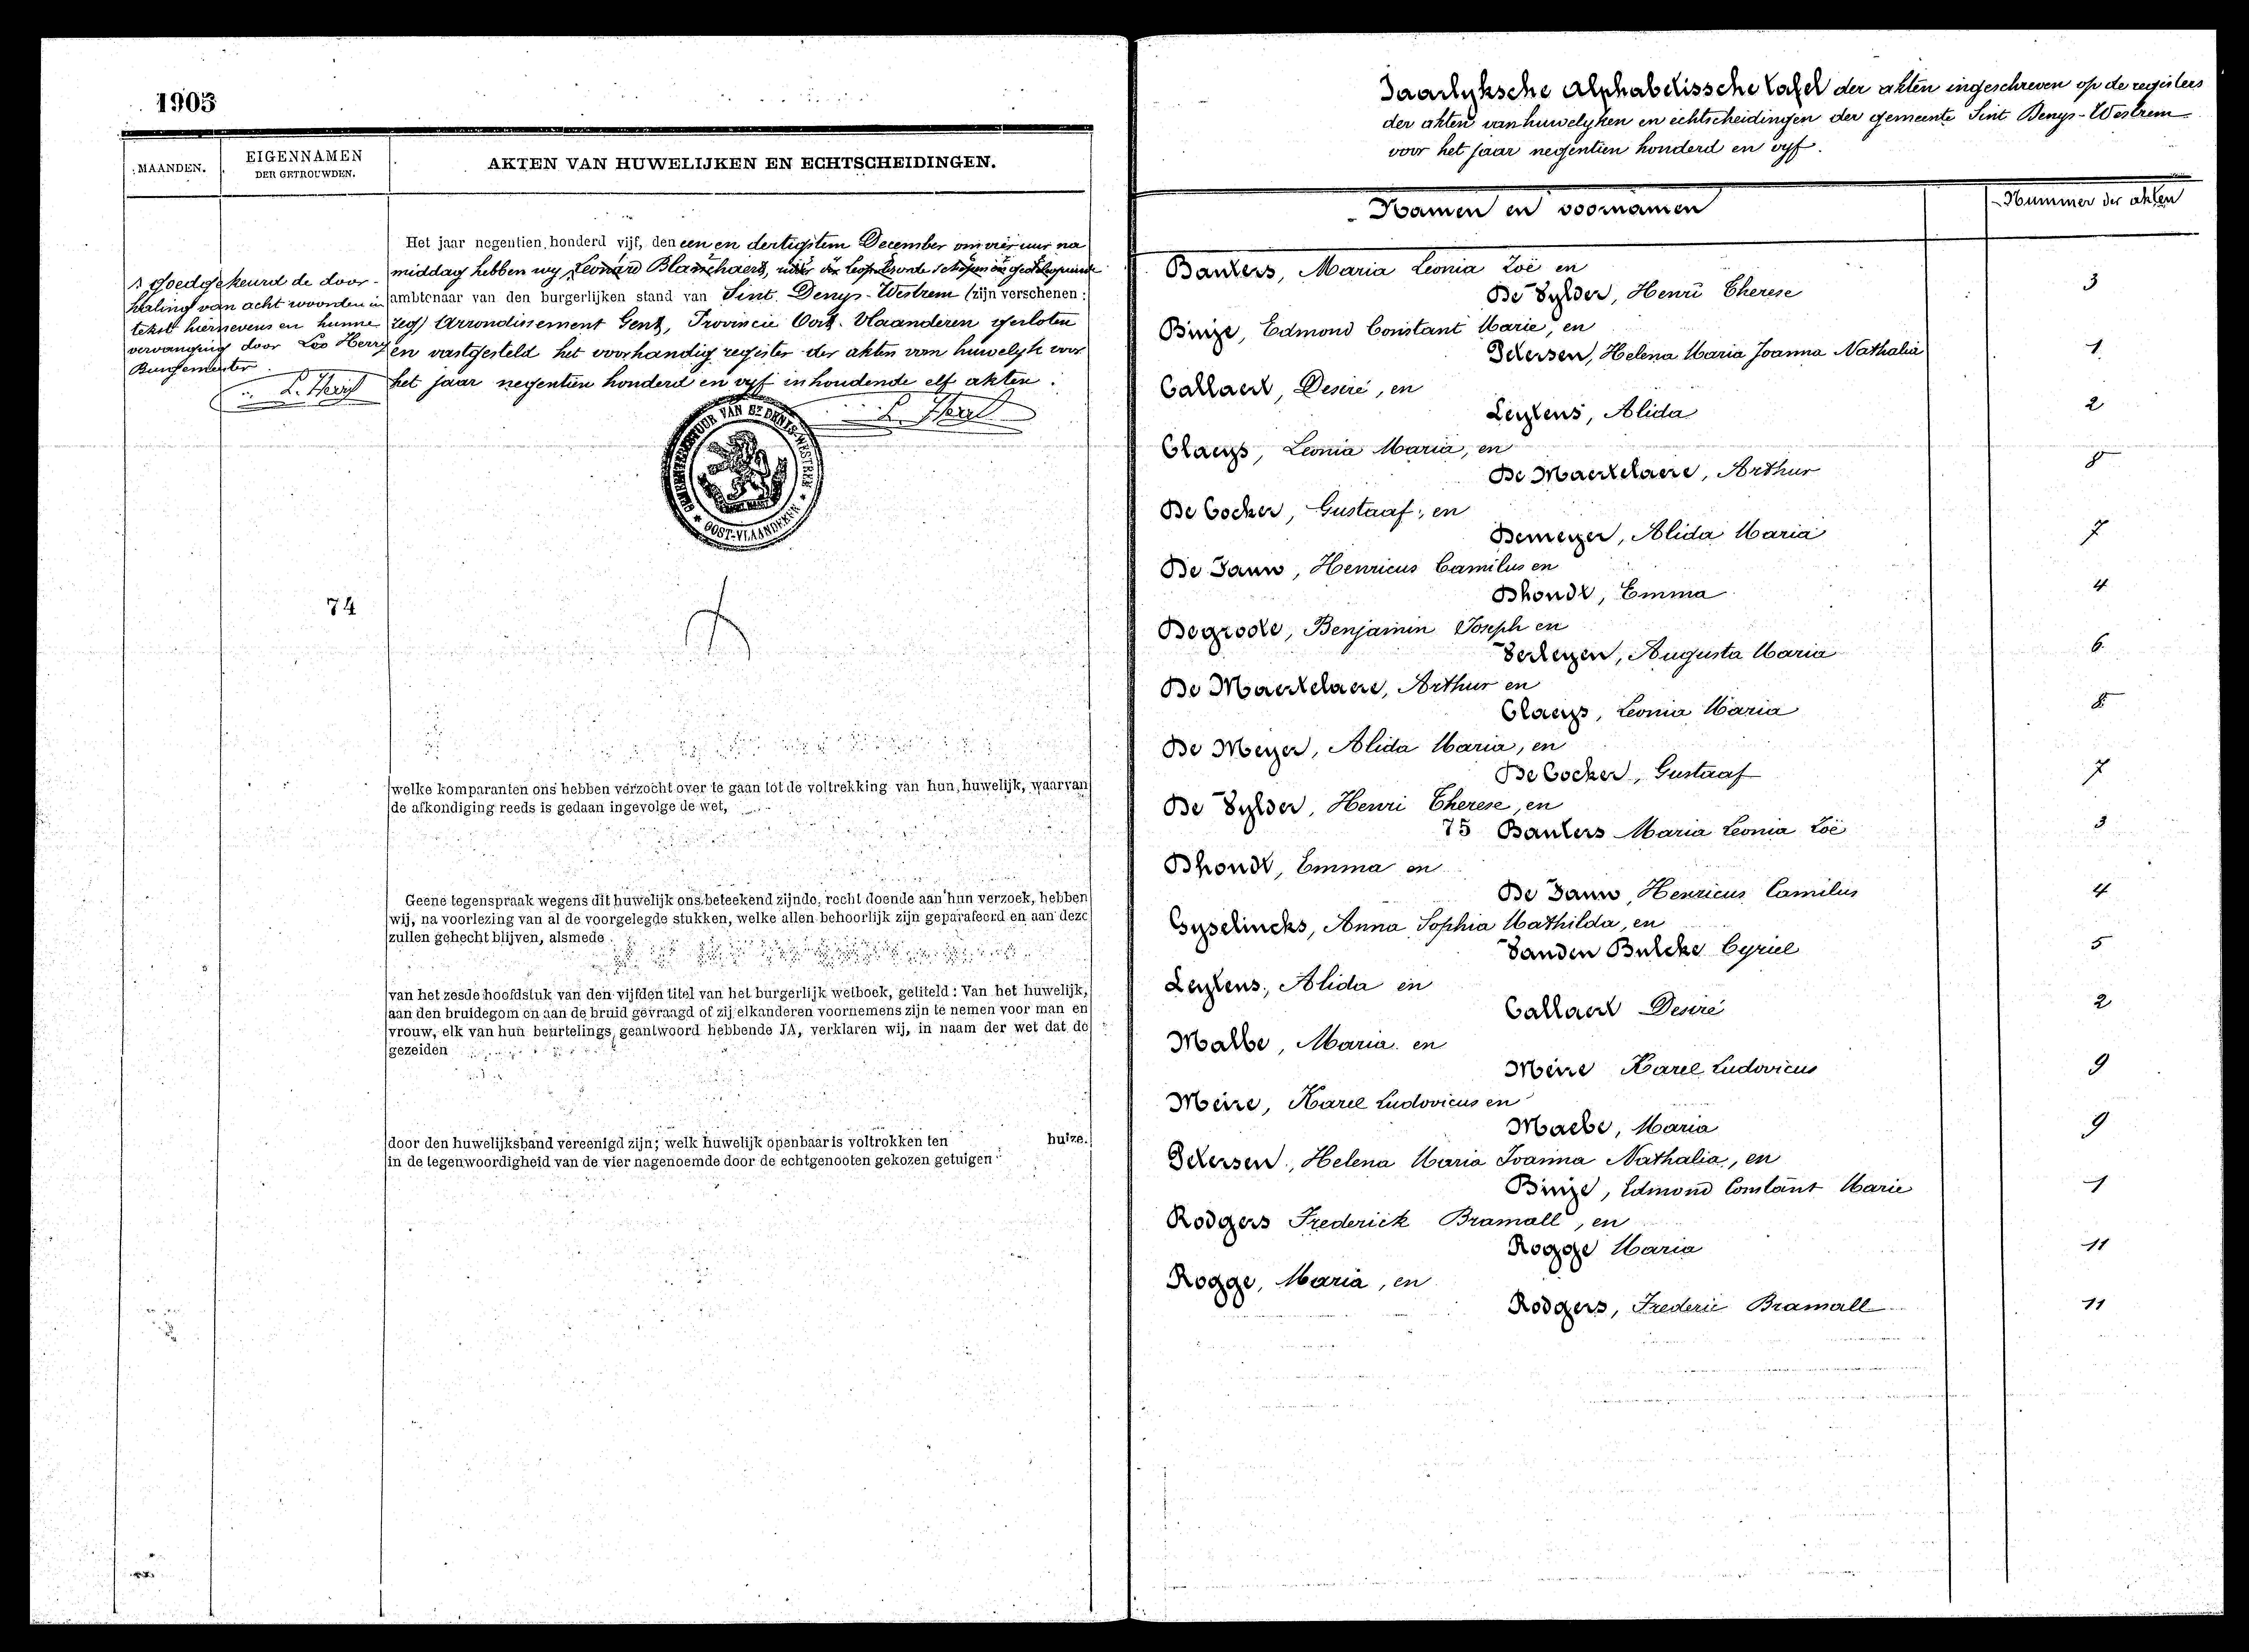 1905
MAANDEN.
EIGENNAMEN
DER GETROUWDEN.
AKTEN VAN HUWELIJKEN EN ECHTSCHEIDINGEN.
Het jaar negentien honderd vijf, den een en dertigsten December om vier uur na
middag hebben wij Leonard Blanchaert,
ambtenaar van den burgerlijken stand van Sint Denys-Westrem (zijn verschenen:
Arrondissement Gent, Provincie Oost-Vlaanderen gesloten
en vastgesteld het voorhandig register der akten van huwelyk voor
het jaar negentien honderd en vyf inhoudende elf akten.
goedgekeurd de door-
haling van acht woorden in
tekst hiernevens en hunne
vervanging door Herry
Burgemeester.
L. Herry
L. Herry
GEMEENTEBESTUUR VAN ST DENIS-WESTREM
OOST-VLAANDEREN
74
welke komparanten ons hebben verzocht over te gaan tot de voltrekking van hun huwelijk, waarvan
de afkondiging reeds is gedaan ingevolge de wet,
Geene tegenspraak wegens dit huwelijk ons beteekend zijnde, recht doende aan hun verzoek, hebben
wij, na voorlezing van al de voorgelegde stukken, welke allen behoorlijk zijn geparafeerd en aan deze
zullen gehecht blijven, alsmede
van het zesde hoofdstuk van den vijfden titel van het burgerlijk wetboek, getiteld: Van het huwelijk,
aan den bruidegom en aan de bruid gevraagd of zij elkanderen voornemens zijn te nemen voor man en
vrouw, elk van hun beurtelings geantwoord hebbende JA, verklaren wij, in naam der wet dat de
gezeiden
door den huwelijksband vereenigd zijn; welk huwelijk openbaar is voltrokken ten huize.
in de tegenwoordigheid van de vier nagenoemde door de echtgenooten gekozen getuigen
Jaarlyksche Alphabetissche tafel der akten ingeschreven op de registers
der akten van huwelyken en echtscheidingen der gemeente Sint Denys-Westrem
voor het jaar negentien honderd en vyf.
Namen en voornamen
Nummer der akten
Bauters, Maria Leonia Zoë en
De Vylder, Henri Therese 3
Binje, Edmond Constant Marie, en
Petersen, Helena Maria Joanna Nathalia 1
Callaert, Desiré, en
Leytens, Alida 2
Claeys, Leonia Maria, en
De Maertelaere, Arthur 8
De Cocker, Gustaaf, en
Demeyer, Alida Maria 7
De Jauw, Henricus Camilus en
Dhondt, Emma 4
Degroote, Benjamin Joseph en
Verleyen, Augusta Maria 6
De Maertelaere, Arthur en
Claeys, Leonia Maria 8
De Meyer, Alida Maria, en
De Cocker, Gustaaf 7
De Vylder, Henri Therese, en
75 Bauters Maria Leonia Zoë 3
Dhondt, Emma en
De Jauw, Henricus Camilus 4
Gyselincks, Anna Sophia Mathilda, en
Vanden Bulcke Cyriel 5
Leytens, Alida en
Callaert Desiré 2
Malbe, Maria en
Meire Karel Ludovicus 9
Meire, Karel Ludovicus en
Maebe, Maria 9
Petersen, Helena Maria Joanna Nathalia, en
Binje, Edmond Constant Marie 1
Rodgers Frederick Bramall, en
Rogge Maria 11
Rogge, Maria, en
Rodgers, Frederic Bramall 11